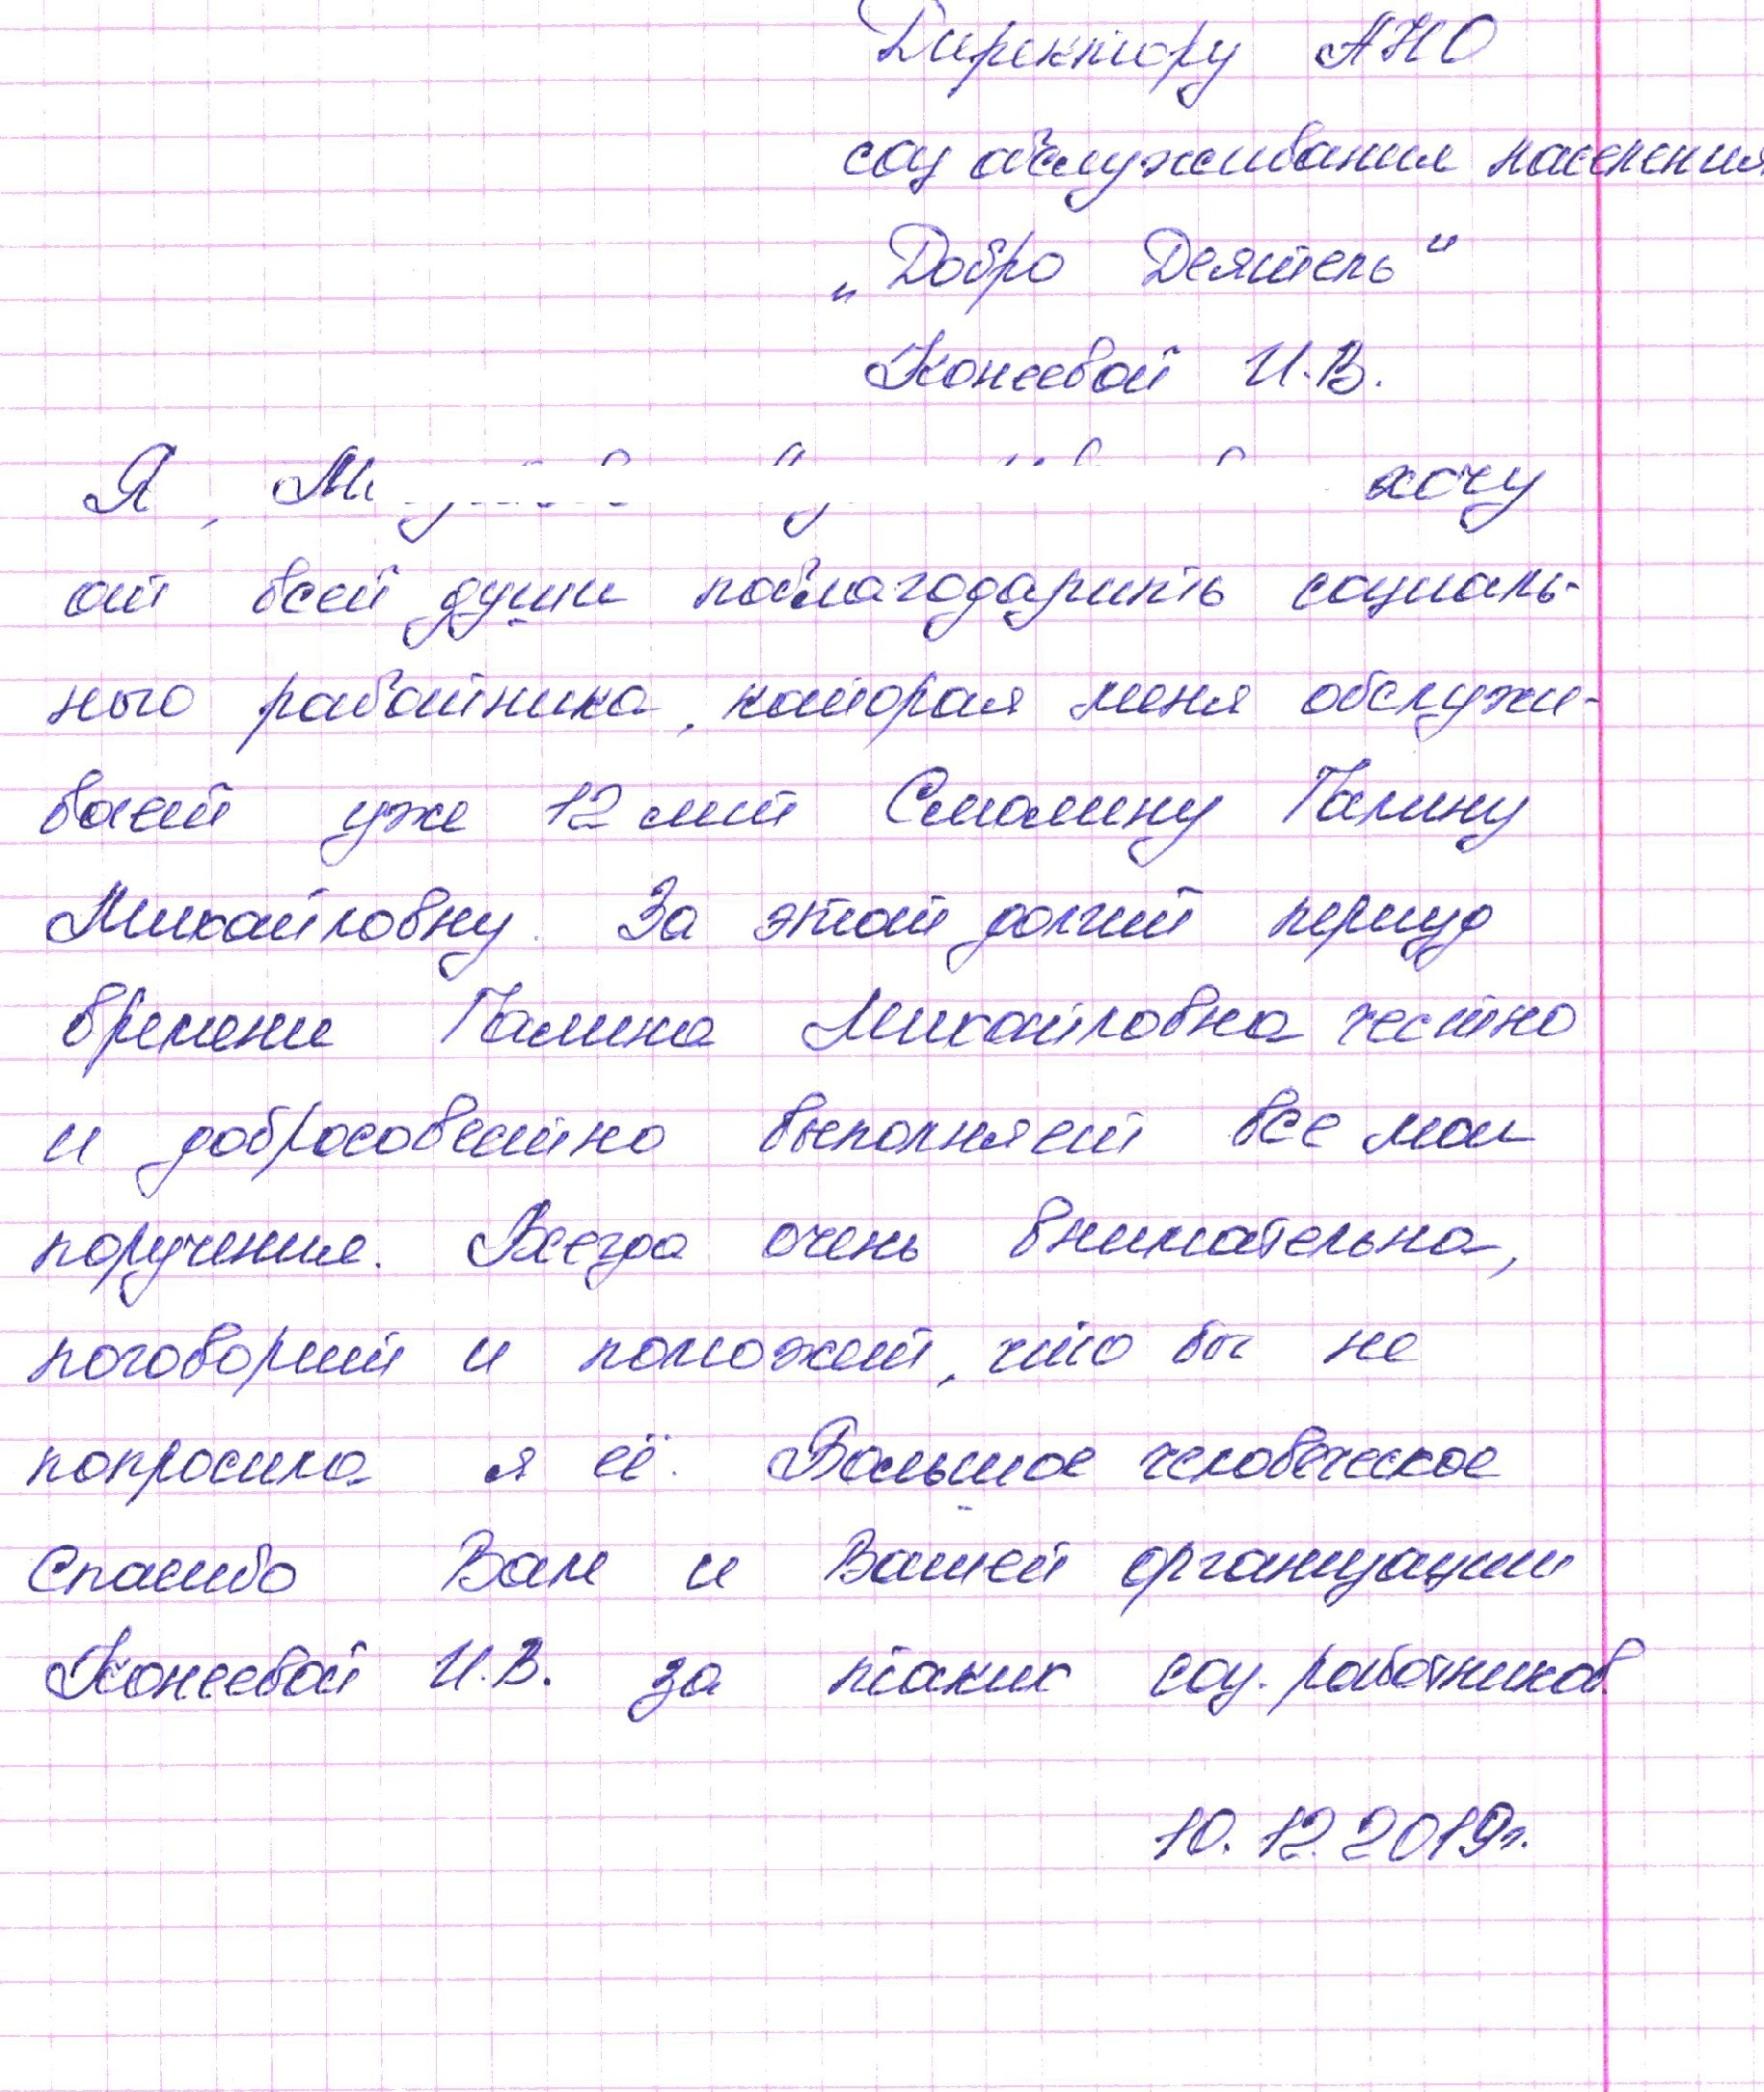 Директору АНО
соц обслуживания населения
„Добро Деятель“
Конеевой И.В.
Я, хочу
от всей души поблагодарить социаль-
ного работника, которая меня обслужи-
вает уже 12 лет Смолину Галину
Михайловну. За этот долгий период
времени Галина Михайловна честно
и добросовестно выполняет все мои
поручения. Всегда очень внимательна,
поговорит и поможет, что бы не
попросила я её. Большое человеческое
спасибо Вам и Вашей организации
Конеевой И.В. за таких соц. работников
10.12.2019г.